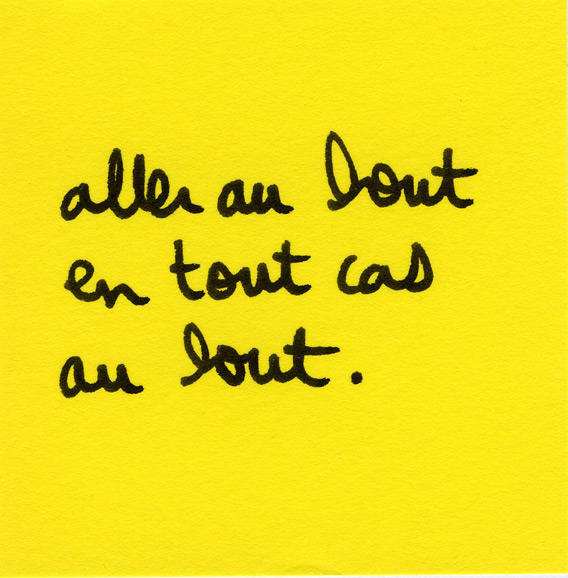 aller au bout
en tout cas
au bout.